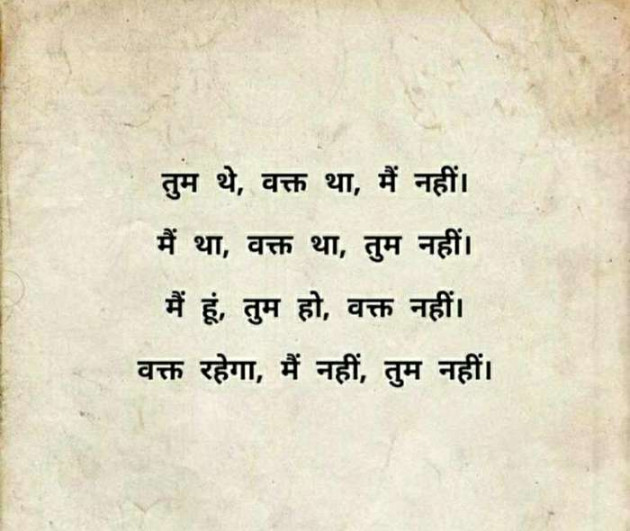 तुम थे, वक्त था, मैं नहीं।
मैं था, वक्त था, तुम नहीं।
मैं हूं, तुम हो, वक्त नहीं।
वक्त रहेगा, मैं नहीं, तुम नहीं।